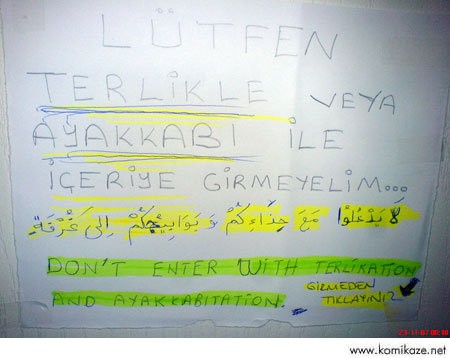 LÜTFEN
TERLİKLE VEYA
AYAKKABI İLE
İÇERİYE GİRMEYELİM...
لَا يَدْخُلُوا مَعَ حِذَاءِكُمْ وَ بَوَابِيجُكُمْ اِلىَ غُرْفَةٍ
DON'T ENTER WITH TERLIKATION
AND AYAKKABITATION.
GİRMEDEN
TIKLAYINIZ
www.komikaze.net